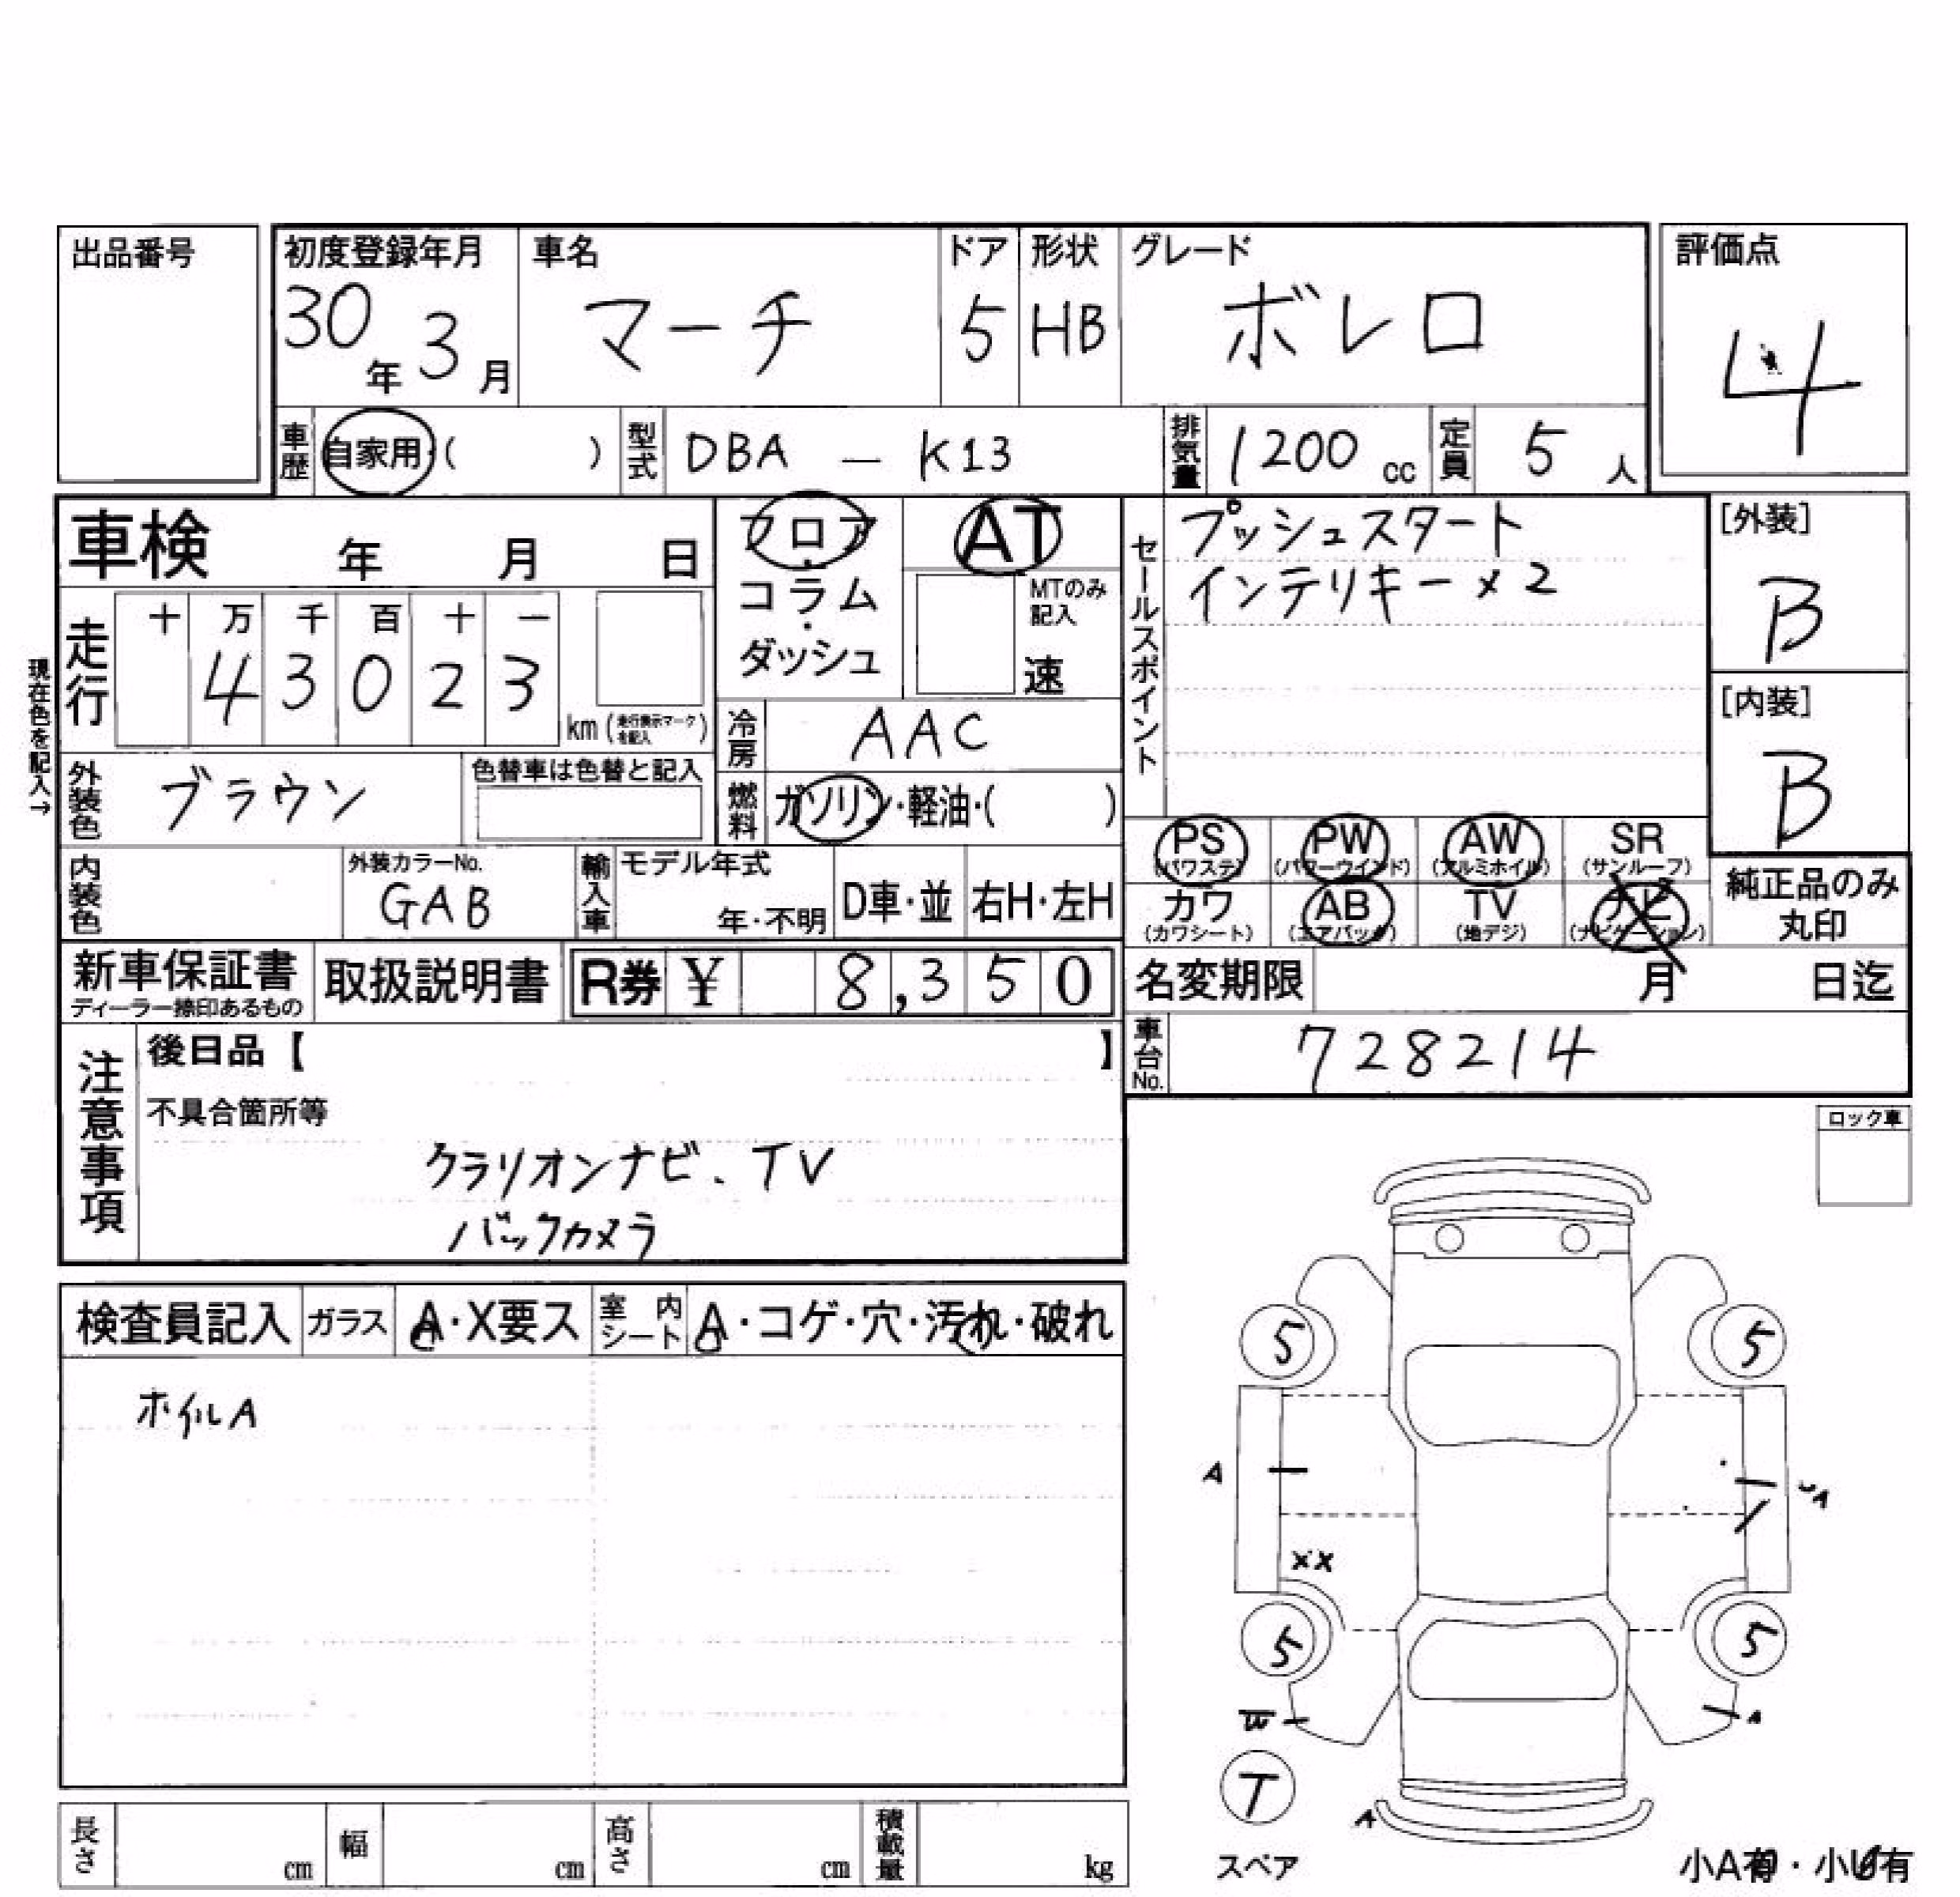 出品番号
初度登録年月 車名 ドア 形状 グレード 評価点
30年3月 マーチ 5 HB ボレロ 4
車歴 自家用・( ) 型式 DBA - K13 排気量 1200 cc 定員 5 人
車検 年 月 日
フロア・コラム・ダッシュ
AT
MTのみ記入
速
セールスポイント
プッシュスタート
インテリキー×2
[外装]
B
[内装]
B
現在色を記入→
走行 十 万 千 百 十 一
4 3 0 2 3
km (走行表示マークを記入)
冷房 AAC
外装色 ブラウン 色替車は色替と記入
燃料 ガソリン・軽油・( )
PS (パワステ) PW (パワーウインド) AW (アルミホイル) SR (サンルーフ)
カワ (カワシート) AB (エアバック) TV (地デジ) ナビ (ナビゲーション)
純正品のみ
丸印
内装色 外装カラーNo. GAB 輸入車 モデル年式 年・不明 D車・並 右H・左H
新車保証書 ディーラー捺印あるもの 取扱説明書 R券 ¥ 8,350
名変期限 月 日迄
車台No. 728214
注意事項
後日品【 】
不具合箇所等
クラリオンナビ、TV
バックカメラ
ロック車
検査員記入 ガラス A・X要ス 室内シート A・コゲ・穴・汚れ・破れ
ホイルA
5 5
A
XX
5 5
A
T
A
スペア
小A有・小U有
長さ cm 幅 cm 高さ cm 積載量 kg